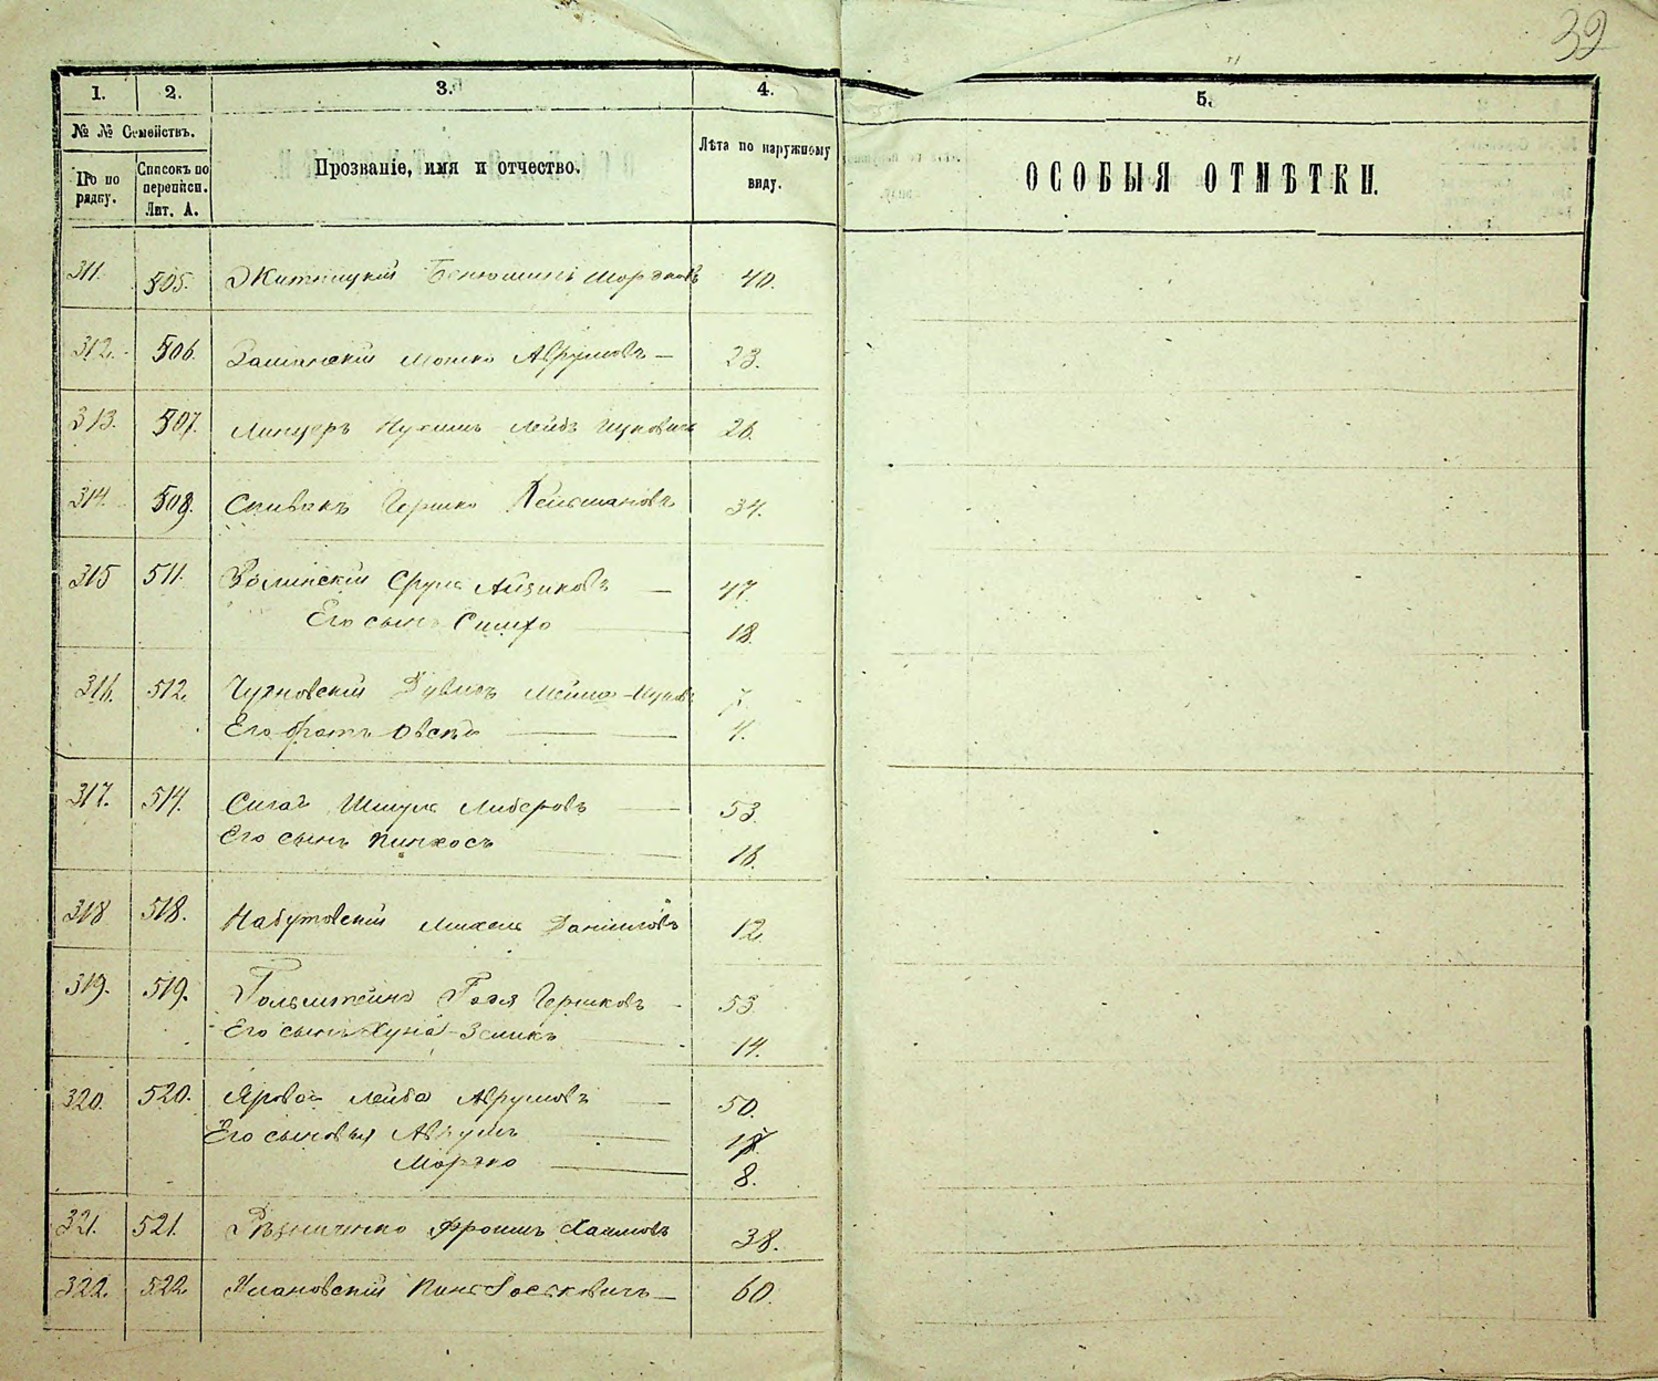 39
1. 2. 3. 4. 5.
№ № Семействъ.
По по рядку. Списокъ по переписи. Лит. А. Прозваніе, имя и отчество. Лѣта по наружному виду. ОСОБЫЯ ОТМѢТКИ.
311. 505. Житницкій Бенюминъ Мордковъ 40.
312. 506. Мошко Аврумовъ — 23.
313. 507. Линцеръ Нухимъ Лейбъ Ицковичъ 26.
314. 508. Спивакъ Гершко 34.
315 511. Волинскій Сруль Айзиковъ — 47.
Его сынъ Симхо — 18.
316. 512. Чудновскій Дувидъ 7.
Его братъ Овсѣй — 4.
317. 514. Сигал Шмуль Либеровъ — 53.
Его сынъ Пинхосъ — 16.
318 518. Набутовскій Михель Даніиловъ 12.
319. 519. Гольштейнъ Гершковъ - 53.
Его сынъ Хуна-Зеликъ — 14.
320. 520. Яровой Лейба Аврумовъ — 50.
Его сыновья Аврумъ —
Мордко — 8.
321. 521. Рѣзниченко Фроимъ Хаимовъ 38.
322. 522. Улановскій Пинс Іоськовичъ — 60.